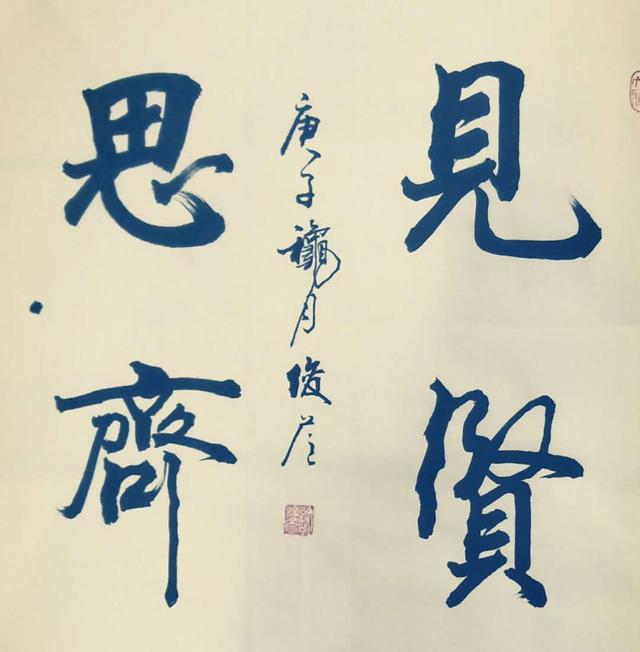 見賢
思齊
庚子龝月俊彦